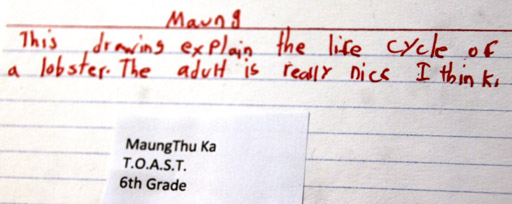 Maung
This drawing explain the life cycle of
a lobster. The adult is really nice I think.
MaungThu Ka
T.O.A.S.T.
6th Grade